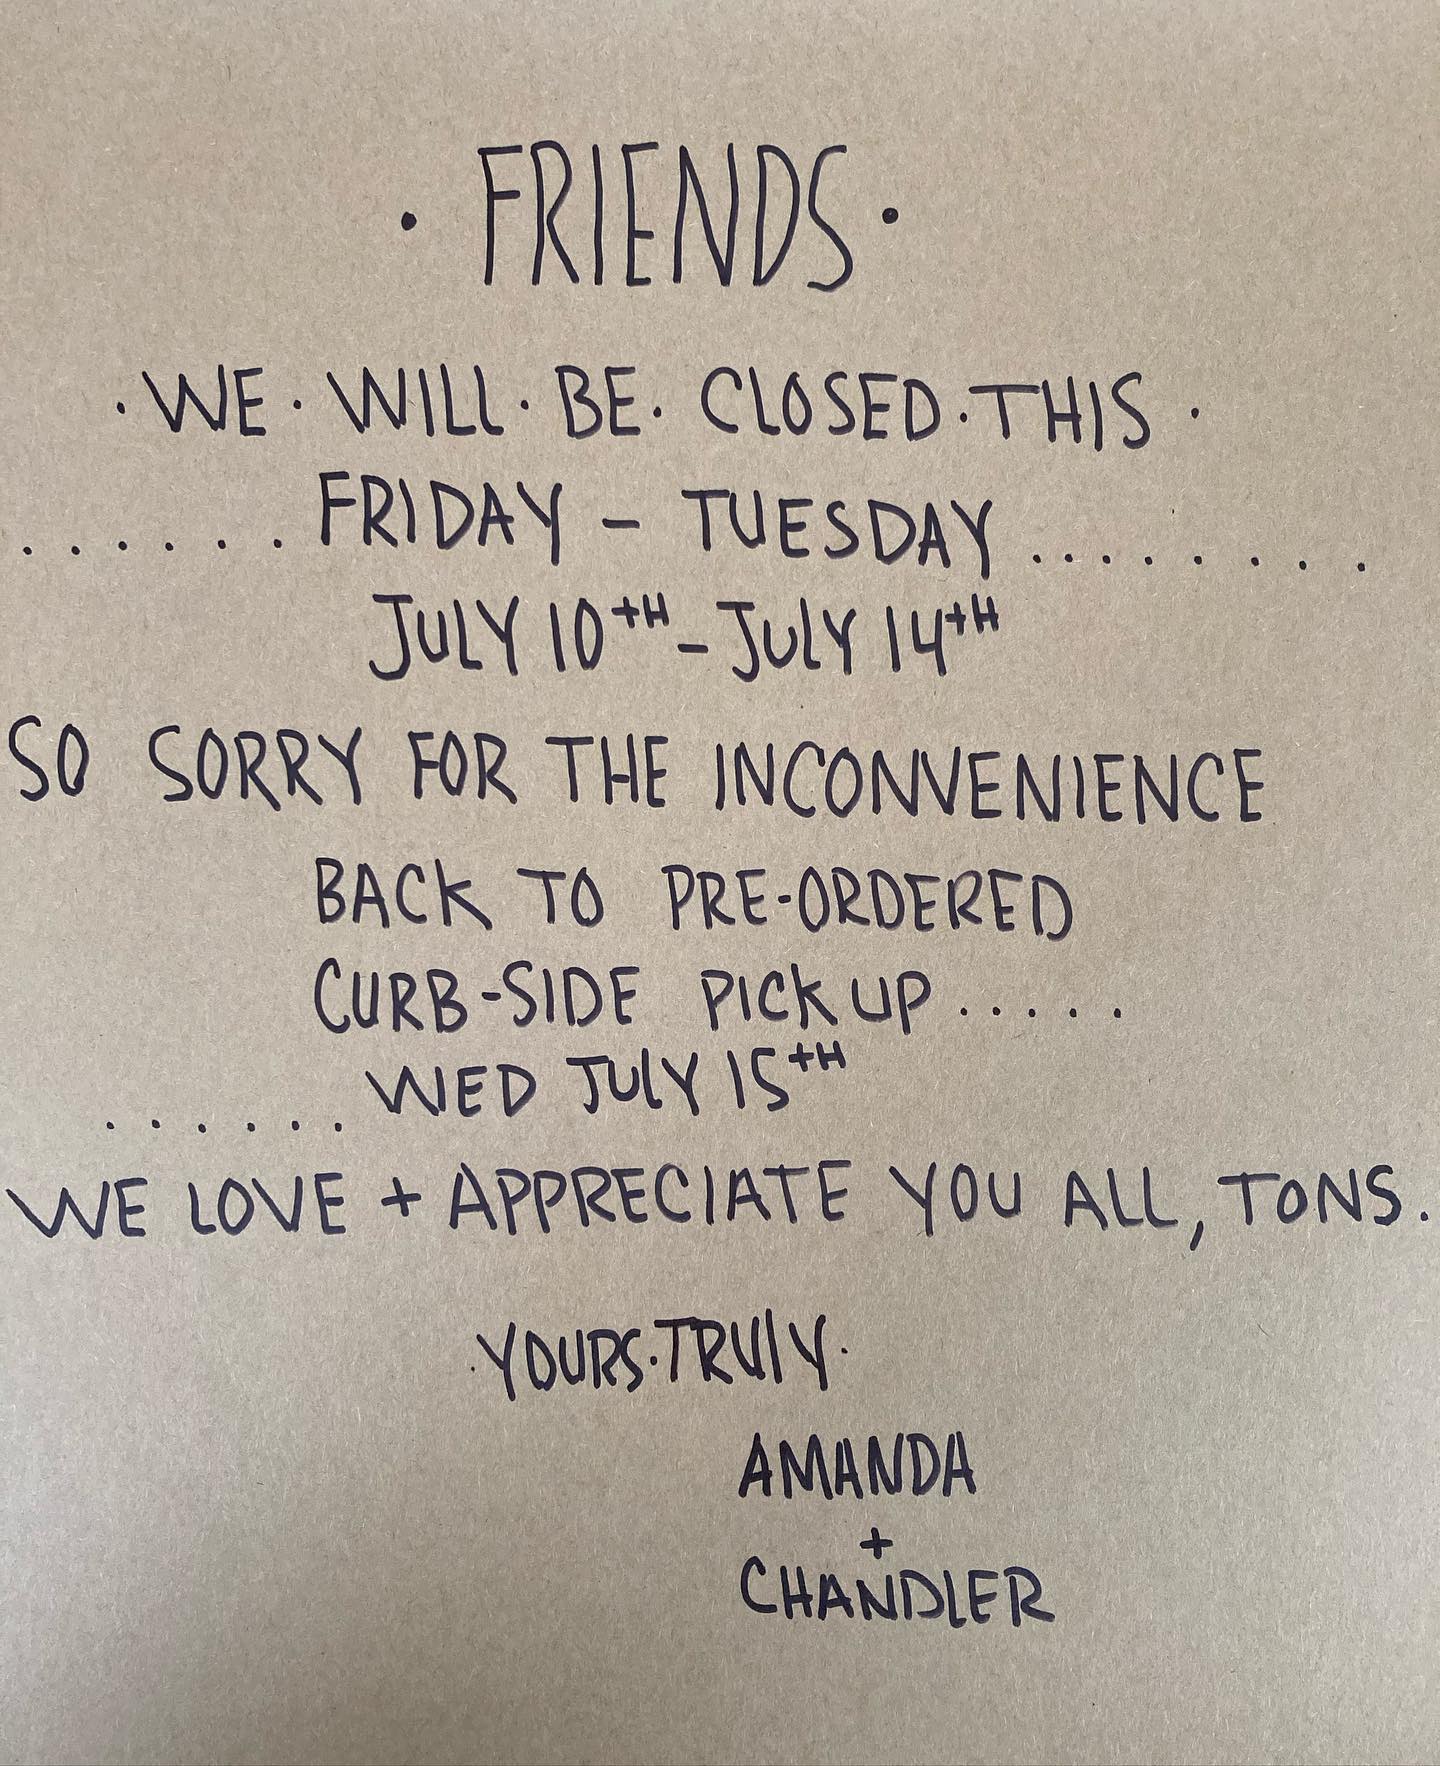 · FRIENDS ·
· WE · WILL · BE · CLOSED · THIS ·
. . . . . . FRIDAY - TUESDAY . . . . . . . .
JULY 10TH - JULY 14TH
SO SORRY FOR THE INCONVENIENCE
BACK TO PRE-ORDERED
CURB-SIDE PICK UP . . . . .
. . . . . . WED JULY 15TH
WE LOVE + APPRECIATE YOU ALL, TONS.
· YOURS · TRULY ·
AMANDA
+
CHANDLER